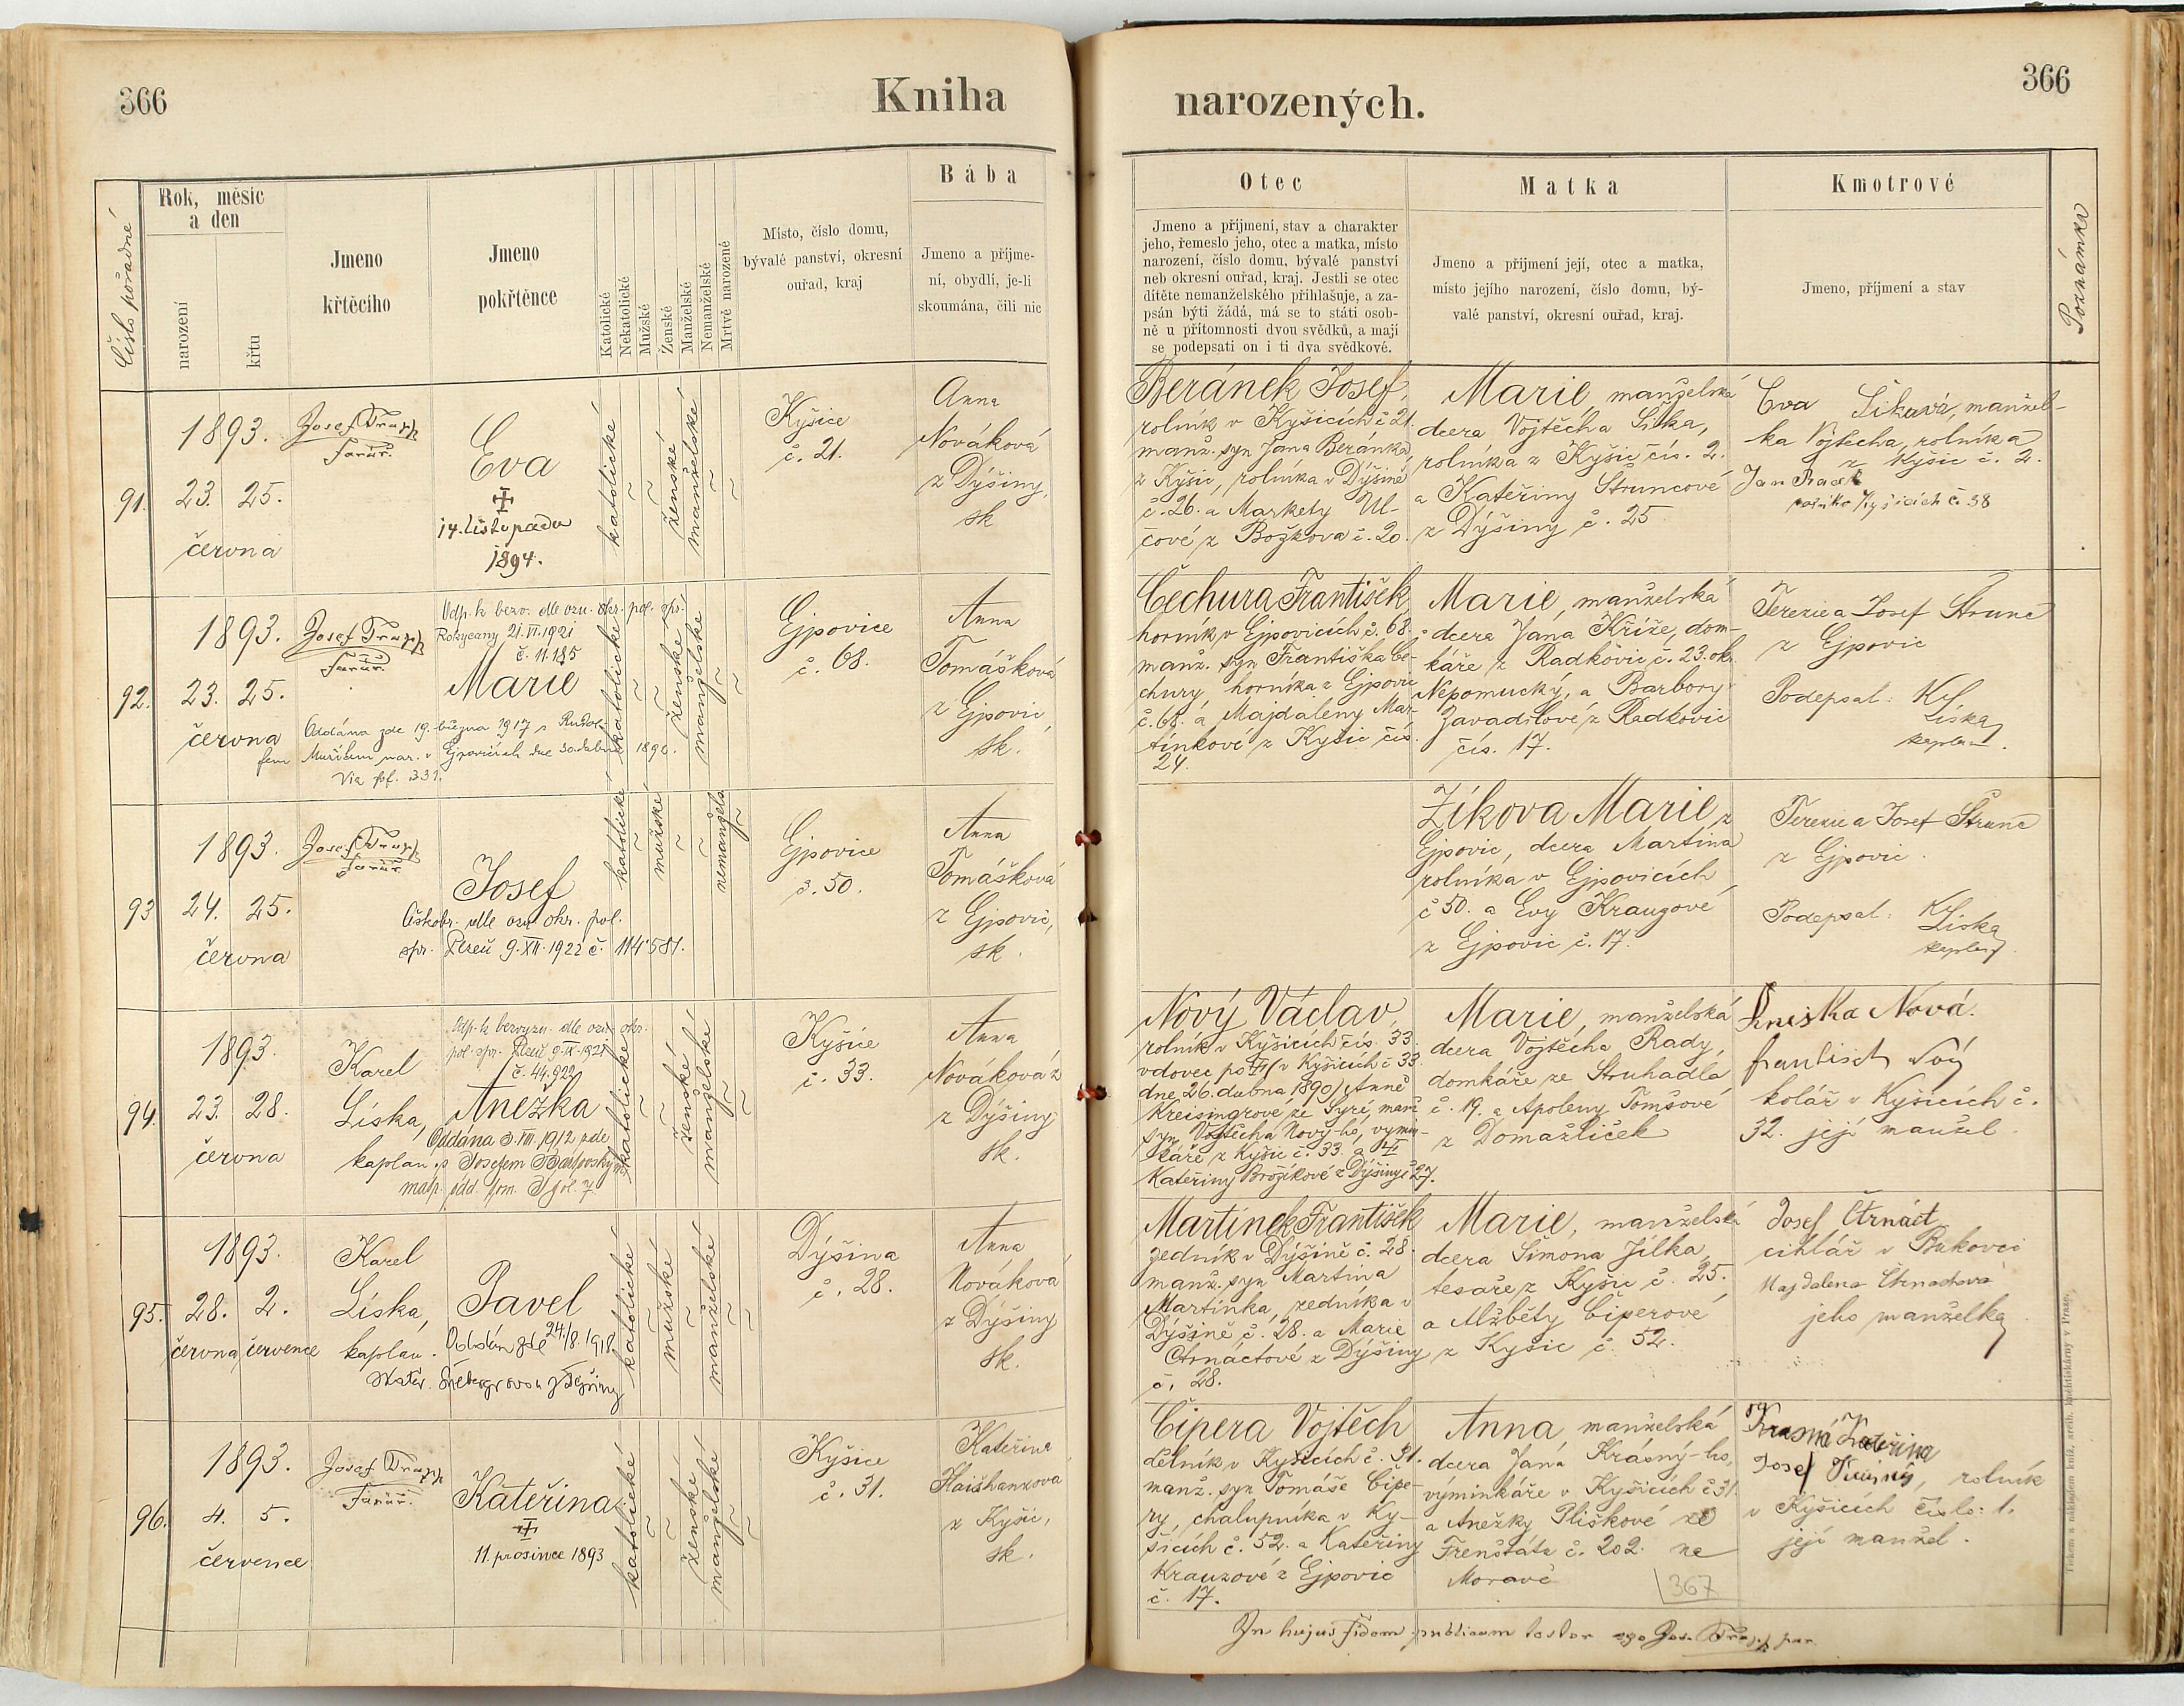 366
Kniha
narozených.
366
Číslo pořadné
Rok, měsíc
a den
narození
křtu
Jmeno
křtěcího
Jmeno
pokřtěnce
Katolické
Nekatolické
Mužské
Ženské
Manželské
Nemanželské
Mrtvě narozené
Místo, číslo domu,
bývalé panství, okresní
ouřad, kraj
Bába
Jmeno a příjme-
ní, obydlí, je-li
skoumána, čili nic
Otec
Jmeno a příjmení, stav a charakter
jeho, řemeslo jeho, otec a matka, místo
narození, číslo domu, bývalé panství
neb okresní ouřad, kraj. Jestli se otec
dítěte nemanželského přihlašuje, a za-
psán býti žádá, má se to státi osob-
ně u přítomnosti dvou svědků, a mají
se podepsati on i ti dva svědkové.
Matka
Jmeno a příjmení její, otec a matka,
místo jejího narození, číslo domu, bý-
valé panství, okresní ouřad, kraj.
Kmotrové
Jmeno, příjmení a stav
Poznámka
91.
1893.
23. 25.
června
Josef
farář.
Eva
14. listopadu
1894.
katolické
ženské
manželské
Kyšice
č. 21.
Anna
Nováková
z Dýšiny,
sk
Beránek Josef,
rolník v Kyšicích č 21.
manž. syn Jana Beránka
z Kyšic, rolníka v Dýšině
č. 26. a Markety Ul-
čové z Božkova č. 20.
Marie, manželská
dcera Vojtěcha Šilka,
rolníka z Kyšic čís. 2.
a Kateřiny Štruncové
z Dýšiny č. 25
Eva manžel-
ka Vojtěcha, rolníka
z Kyšic č. 2.
Jan
Kyšicích č. 38
92.
1893.
23. 25.
června
Josef
farář.
Odp. k bezv. dle ozn. okr. pol. spr.
Rokycany 21. VI. 1921
č. 11.185
Marie
Oddána zde 19. března 1917 s
nar. v Ejpovicích dne 1890.
katolické
ženské
manželské
Ejpovice
č. 68.
Anna
Tomášková
z Ejpovic,
sk.
Čechura František
horník v Ejpovicích č. 68.
manž. syn Františka Če-
chury, horníka z Ejpovic
č. 68. a Majdaleny Mar-
tínkové z Kyšic čís.
24.
Marie, manželská
dcera Jána Kříže, dom-
káře z Radkovic č. 23. okr.
Nepomucký, a Barbory
Zavadilové z Radkovic
čís. 17.
Terezie a Josef Štrunc
z Ejpovic
Podepsal: Kl
Líska
kaplan.
93
1893.
24. 25.
června
Josef
farář
Josef
Českobr. dle ozn. okr. pol.
spr. Plzeň 9. XII. 1922 č. 114.581.
katolické
mužské
nemanžels.
Ejpovice
č. 50.
Anna
Tomášková
z Ejpovic,
sk.
Zíkova Marie z
Ejpovic, dcera Martina
rolníka v Ejpovicích
č 50. a Evy Krauzové
z Ejpovic č. 17.
Terezie a Josef Štrunc
z Ejpovic.
Podepsal: Kl
Líska
kaplan
94.
1893.
23. 28.
června
Karel
Líska,
kaplan
Odp. k bezvyzn. dle ozn. okr.
pol. spr. Plzeň 9. IX. 1921
č. 44.922
Anežka
Oddána 3. VIII. 1912 zde
s Josefem
matr. odd. tom. I fol. 7.
katolické
ženské
manželské
Kyšice
č. 33.
Anna
Nováková z
z Dýšiny
sk.
Nový Václav,
rolník v Kyšicích čís. 33.
vdovec po (v Kyšicích č 33.
dne 26. dubna 1890) Anně
Kreisingrové ze Syré, manž.
syn Vojtěcha Nový-ho, výmin-
káře z Kyšic č. 33. a
Kateřiny Brožíkové z Dýšiny č 27.
Marie, manželská
dcera Vojtěcha Rady,
domkáře ze Struhadla
č. 19. a Apoleny Tomšové
z Domažliček
Aneska Nová.
František Nový
kolář v Kyšicích č.
32. její manžel
95.
1893.
28. 2.
června července
Karel
Líska,
kaplan.
Pavel
Oddán zde 24./8. 1918.
s Kater. z Dejšiny
katolické
mužské
manželské
Dýšina
č. 28.
Anna
Nováková
z Dýšiny
sk.
Martínek František
zedník v Dýšině č. 28.
manž. syn Martina
Martínka, zedníka v
Dýšině č. 28. a Marie
Čtrnáctové z Dýšiny
č. 28.
Marie, manželská
dcera Šimona Jílka,
tesaře z Kyšic č. 25.
a Alžběty Čiperové
z Kyšic č. 52.
Josef Čtrnáct
cihlář v Bukovci
Majdalena Čtrnactová
jeho manželka
96.
1893.
4. 5.
července
Josef
Farář.
Kateřina
11. prosince 1893
katolické
ženské
manželské
Kyšice
č. 31.
Kateřina
z Kyšic,
sk.
Čipera Vojtěch
dělník v Kyšicích č. 31.
manž. syn Tomáše Čipe-
ry, chalupníka v Ky-
šicích č. 52. a Kateřiny
Krauzové z Ejpovic
č. 17.
Anna manželská
dcera Jána Krásný-ho,
výminkáře v Kyšicích č 31.
a Anežky Pliškové ze
Frenštátu č. 202. na
Moravě
367
Krasná Kateřina
Josef Krásný, rolník
v Kyšicích číslo: 1.
její manžel.
In hujus fidem publicam testor ego Jos. par.